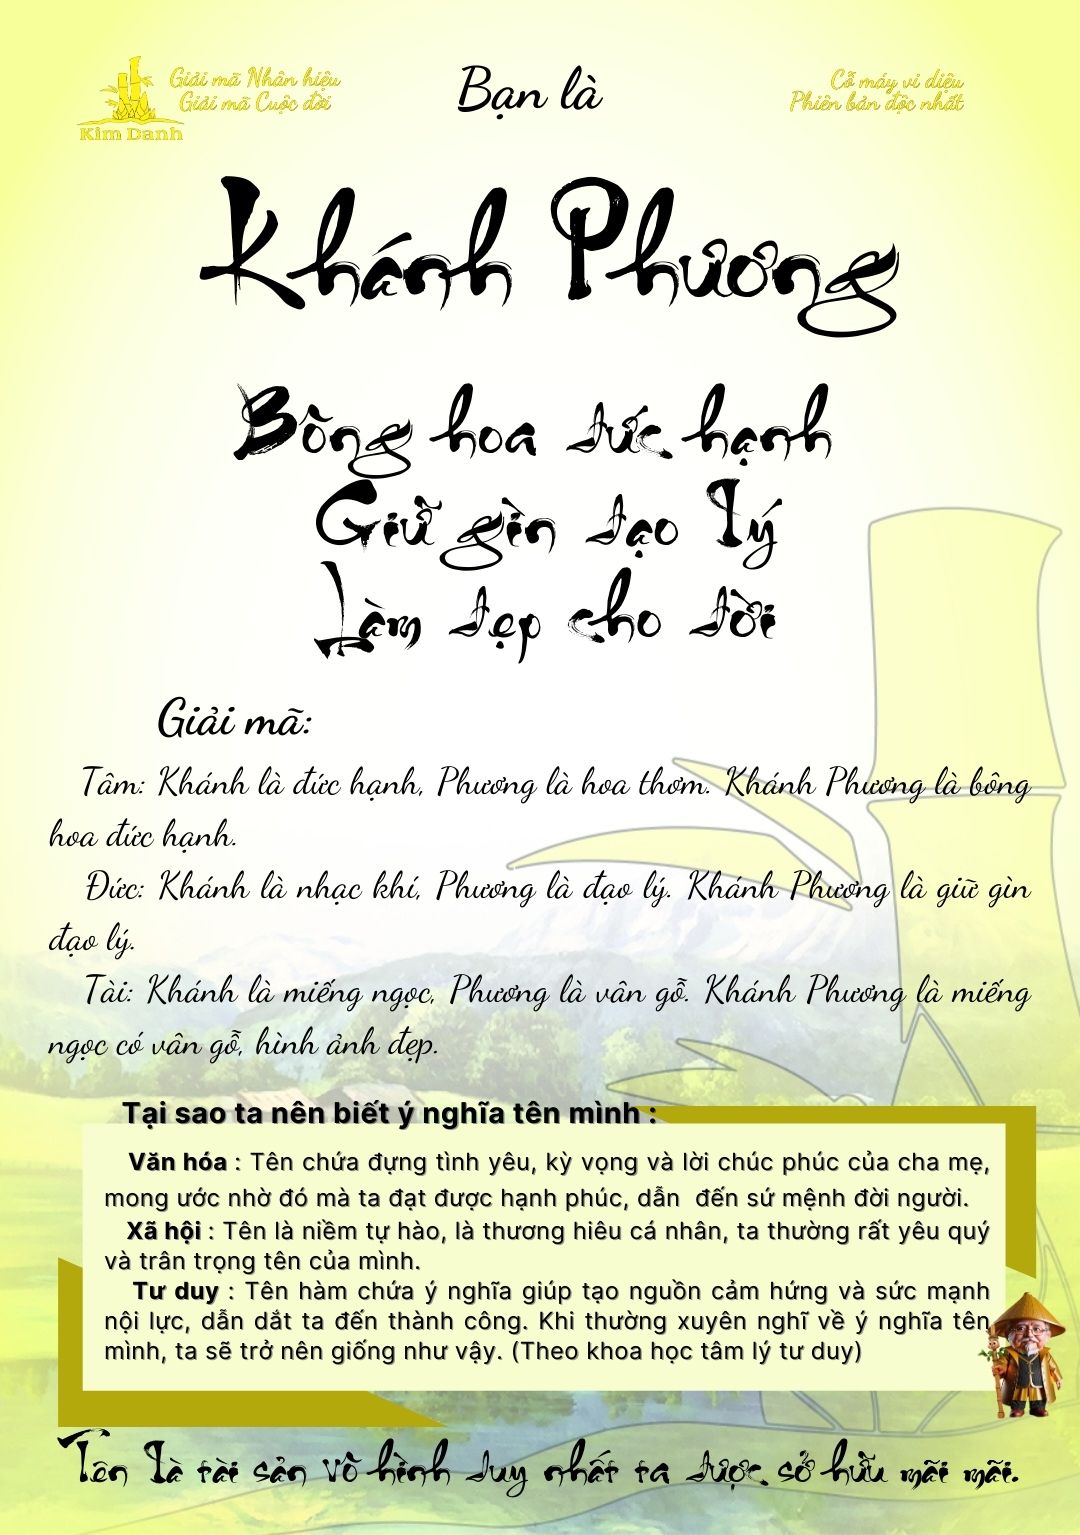 Giải mã Nhân hiệu
Giải mã Cuộc đời
Kim Danh
Bạn là
Cỗ máy vi diệu
Phiên bản độc nhất
Khánh Phương
Bông hoa đức hạnh
Giữ gìn đạo lý
Làm đẹp cho đời
Giải mã:
Tâm: Khánh là đức hạnh, Phương là hoa thơm. Khánh Phương là bông
hoa đức hạnh.
Đức: Khánh là nhạc khí, Phương là đạo lý. Khánh Phương là giữ gìn
đạo lý.
Tài: Khánh là miếng ngọc, Phương là vân gỗ. Khánh Phương là miếng
ngọc có vân gỗ, hình ảnh đẹp.
Tại sao ta nên biết ý nghĩa tên mình :
Văn hóa : Tên chứa đựng tình yêu, kỳ vọng và lời chúc phúc của cha mẹ,
mong ước nhờ đó mà ta đạt được hạnh phúc, dẫn đến sứ mệnh đời người.
Xã hội : Tên là niềm tự hào, là thương hiêu cá nhân, ta thường rất yêu quý
và trân trọng tên của mình.
Tư duy : Tên hàm chứa ý nghĩa giúp tạo nguồn cảm hứng và sức mạnh
nội lực, dẫn dắt ta đến thành công. Khi thường xuyên nghĩ về ý nghĩa tên
mình, ta sẽ trở nên giống như vậy. (Theo khoa học tâm lý tư duy)
Tên là tài sản vô hình duy nhất ta được sở hữu mãi mãi.